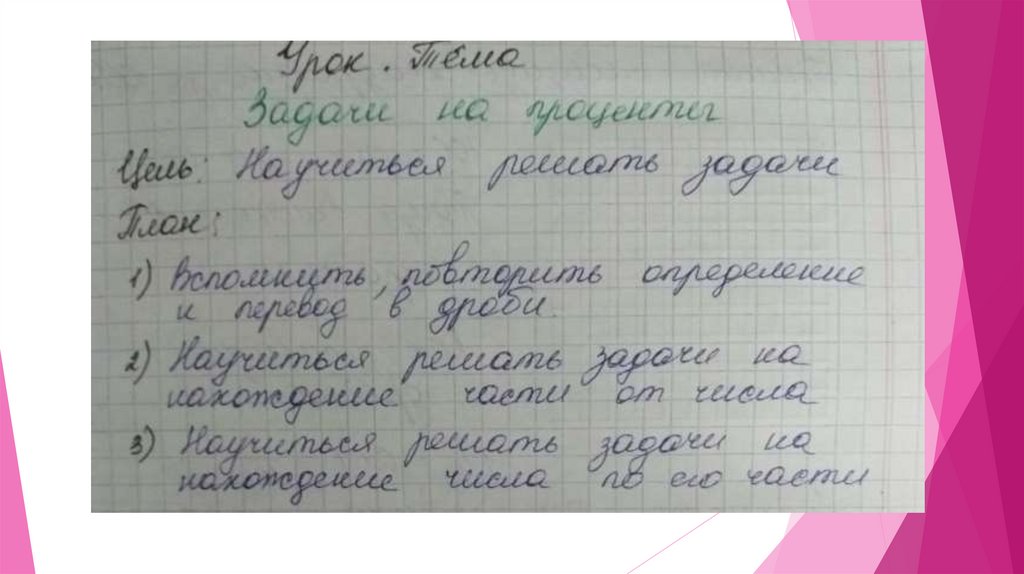 Урок. Тема
Задачи на проценты
Цель: Научиться решать задачи
План:
1) Вспомнить, повторить определение
и перевод в дроби.
2) Научиться решать задачи на
нахождение части от числа
3) Научиться решать задачи на
нахождение числа по его части